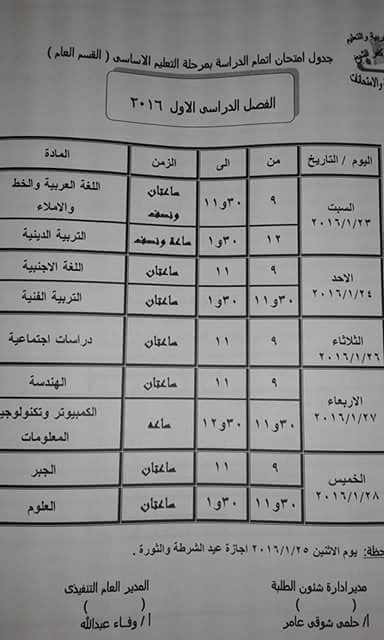 ربية والتعليم
والامتحانات
جدول امتحان اتمام الدراسة بمرحلة التعليم الاساسى ( القسم العام )
الفصل الدراسى الاول ٢٠١٦
اليوم / التاريخ من الى الزمن المادة
السبت ٢٠١٦/١/٢٣ ٩ ٣٠و١١ ساعتان ونصف اللغة العربية والخط والاملاء
١٢ ٣٠و١ ساعة ونصف التربية الدينية
الاحد ٢٠١٦/١/٢٤ ٩ ١١ ساعتان اللغة الاجنبية
٣٠و١١ ٣٠و١ ساعتان التربية الفنية
الثلاثاء ٢٠١٦/١/٢٦ ٩ ١١ ساعتان دراسات اجتماعية
الاربعاء ٢٠١٦/١/٢٧ ٩ ١١ ساعتان الهندسة
٣٠و١١ ٣٠و١٢ ساعه الكمبيوتر وتكنولوجي المعلومات
الخميس ٢٠١٦/١/٢٨ ٩ ١١ ساعتان الجبر
٣٠و١١ ٣٠و١ ساعتان العلوم
حظة: يوم الاثنين ٢٠١٦/١/٢٥ اجازة عيد الشرطة والثورة .
مدير ادارة شئون الطلبة المدير العام التنفيذى
( ) ( )
أ/ حلمى شوقى عامر أ/ وفاء عبدالله